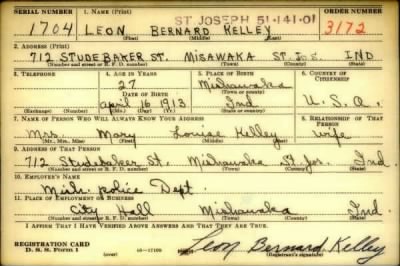 SERIAL NUMBER 1. NAME (Print) ORDER NUMBER
ST. JOSEPH 51-141-01
1704 LEON BERNARD KELLEY 3172
(First) (Middle) (Last)
2. ADDRESS (Print)
712 STUDEBAKER ST. MISAWAKA ST. JOS. IND
(Number and street or R. F. D. number) (Town) (County) (State)
3. TELEPHONE 4. AGE IN YEARS 5. PLACE OF BIRTH 6. COUNTRY OF CITIZENSHIP
27 Mishawaka
DATE OF BIRTH (Town or county)
April 16 1913 Ind U.S.A.
(Exchange) (Number) (Mo.) (Day) (Yr.) (State or country)
7. NAME OF PERSON WHO WILL ALWAYS KNOW YOUR ADDRESS 8. RELATIONSHIP OF THAT PERSON
Mrs. Mary Louise Kelley wife
(Mr., Mrs., Miss) (First) (Middle) (Last)
9. ADDRESS OF THAT PERSON
712 Studebaker St. Mishawaka St. Jos. Ind.
(Number and street or R. F. D. number) (Town) (County) (State)
10. EMPLOYER'S NAME
Mish. Police Dept.
11. PLACE OF EMPLOYMENT OR BUSINESS
City Hall Mishawaka Ind.
(Number and street or R. F. D. number) (Town) (County) (State)
I AFFIRM THAT I HAVE VERIFIED ABOVE ANSWERS AND THAT THEY ARE TRUE.
REGISTRATION CARD
D. S. S. Form 1 (over) 16—17105 Leon Bernard Kelley
(Registrant's signature)